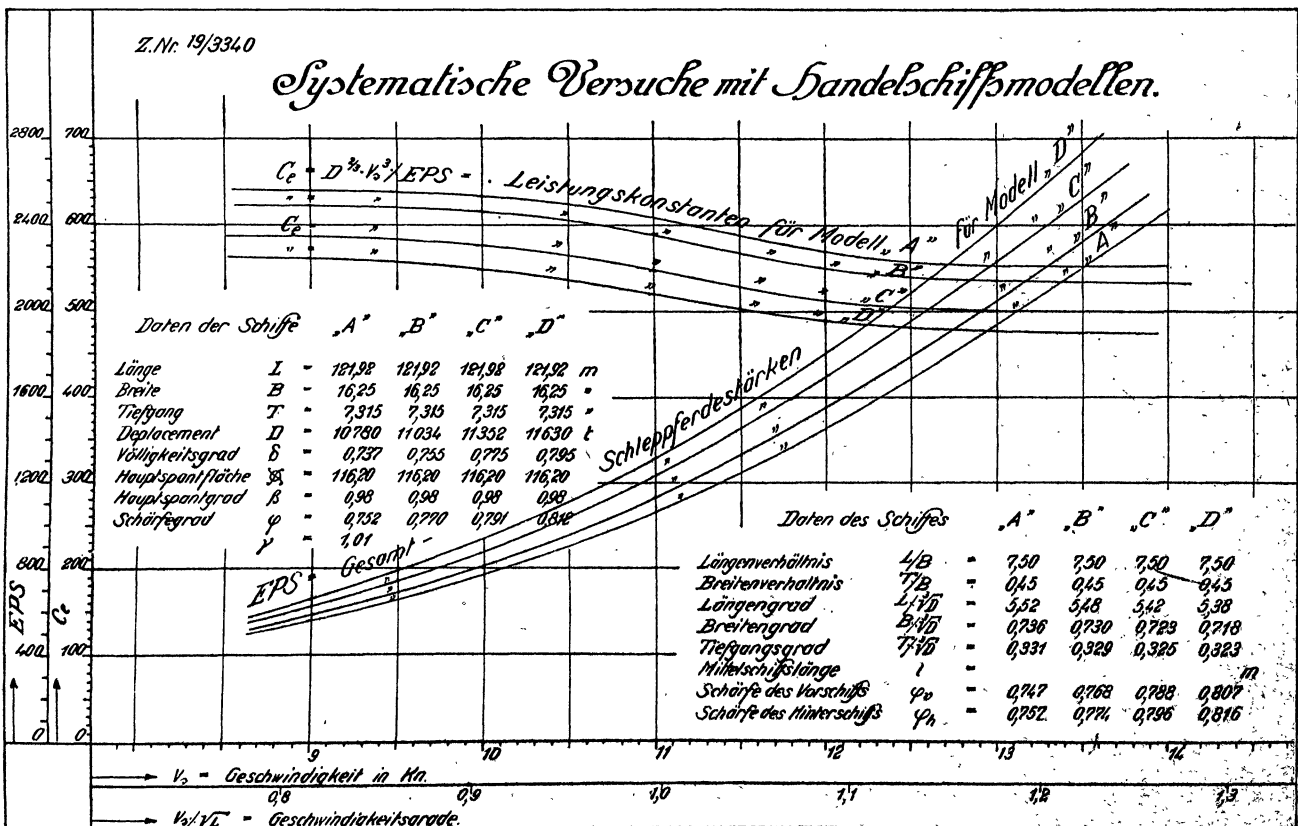 Z.Nr. 19/3340
Systematische Versuche mit Handelschiffsmodellen.
2800 700
2400 600
2000 500
1600 400
1200 300
800 200
400 100
0 0
EPS
Ce
Ce = D⅔·V₀³/EPS = Leistungskonstanten für Modell „A”
„ = „ „ „ „ „ „B”
Ce = „ „ „ „ „ „C”
„ = „ „ „ „ „ „D”
EPS = Gesamt - Schleppferdestärken für Modell „D”
„ „ „ „ „ „C”
„ „ „ „ „ „B”
„ „ „ „ „ „A”
Daten der Schiffe „A” „B” „C” „D”
Länge L = 121,92 121,92 121,92 121,92 m
Breite B = 16,25 16,25 16,25 16,25 „
Tiefgang T = 7,315 7,315 7,315 7,315 „
Deplacement D = 10780 11034 11352 11630 t
Völligkeitsgrad δ = 0,737 0,755 0,775 0,795
Hauptspantfläche = 116,20 116,20 116,20 116,20
Hauptspantgrad β = 0,98 0,98 0,98 0,98
Schärfegrad φ = 0,752 0,770 0,791 0,812
γ = 1,01
Daten des Schiffes „A” „B” „C” „D”
Längenverhältnis L/B = 7,50 7,50 7,50 7,50
Breitenverhältnis T/B = 0,45 0,45 0,45 0,45
Längengrad L/∛D = 5,52 5,48 5,42 5,38
Breitengrad B/∛D = 0,736 0,730 0,723 0,718
Tiefgangsgrad T/∛D = 0,331 0,329 0,325 0,323
Mittelschiffslänge l = m
Schärfe des Vorschiffs φv = 0,747 0,768 0,788 0,807
Schärfe des Hinterschiffs φh = 0,757 0,774 0,796 0,816
9 10 11 12 13 14
V₀ = Geschwindigkeit in Kn.
0,8 0,9 1,0 1,1 1,2 1,3
V₀/√L = Geschwindigkeitsgrade.